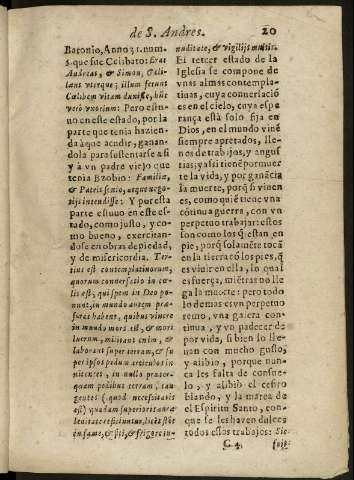 de S. Andres. 20
Baronio, Anno 31. num.
s. que fue Celibato: Erat
Andreas, & Simon, Cæli-
bant vterque; illum ferunt
Cœlibem vitam duxisse, hūc
verò vxorium: Pero estu-
uo en este estado, por la
parte que tenia hazien-
da à que acudir, ganan-
dola para sustentarse a si
y à vn padre viejo que
tenia Bzobio: Familiæ,
& Patris senio, atque nego-
tijs intendisse: Y por esta
parte estuuo en este es-
tado, como justo, y co-
mo bueno, exercitan-
dose en obras de piedad,
y de misericordia. Ter-
tius est contemplatinorum,
quorum conuersatio in cœ-
lis est; qui spem in Deo po-
nunt, in mundo autem præ-
suras habent, quibus viuere
in mundo mors est, & mori
lucrum, militant enim, &
laborant super terram, & su-
per ipsos pedum articulos in
nitentes, in nullo præter-
quam pedibus terram, tan-
gentes (quod necessitatis
est) quadam superioris tan-
lenitate reficiuntur, licèt sint
in fame, & siti, & frigore in
nuditate, & vigilijs multis.
El tercer estado de la
Iglesia se compone de
vnas almas contempla-
tiuas, cuya conuersaciō
es en el cielo, cuya espe-
rança està solo fija en
Dios, en el mundo viuē
siempre apretados, lle-
nos de trabajos, y angus-
tias; ya si tiene por muer-
te la vida, y por ganācia
la muerte, porq̄ si viuen
es, como quiē tiene vna
cōtinua guerra, con vn
perpetuo trabajar: estos
son como los q̄ estan en
pie, porq̄ solamēte tocā
en la tierra cō los pies, q̄
es viuir en ella, in qual
es fuerça, miētras no lle-
ga la muerte: pero todo
lo demas es vn perpetuo
remo, vna galera con-
tinua, y vn padecer de
por vida, si bien lo lle-
uan con mucho gusto,
y alibio, porque nun-
ca les falta de consue-
lo, y alibio el cefiro
blando, y la marea de
el Espiritu Santo, con-
que se les haven dulces
todos estos trabajos: Sic-
C 4.